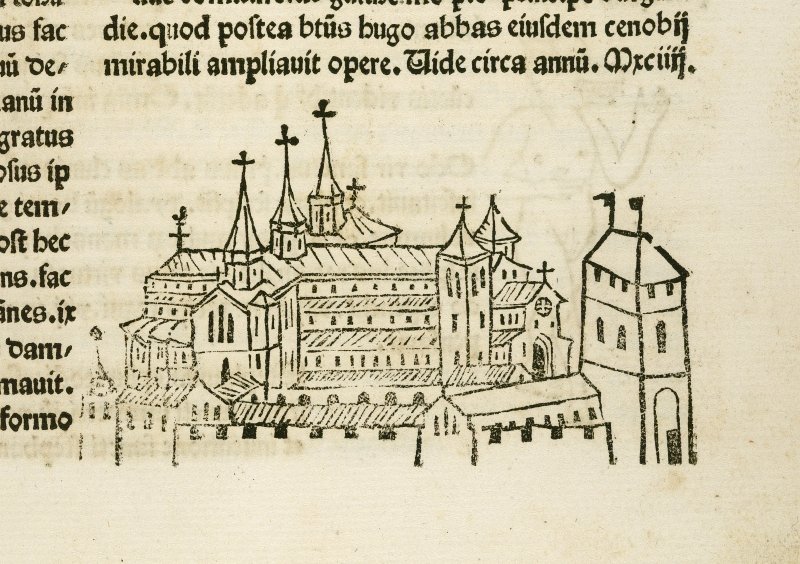 us fac
uū de/
anū in
gratus
osus ip
e tem/
ost hec
ns.fac
ānes.ix
dam/
mauit.
formo
die.quod postea btūs hugo abbas eiusdem cenobij
mirabili ampliauit opere. Uide circa annū. Mxciiij.